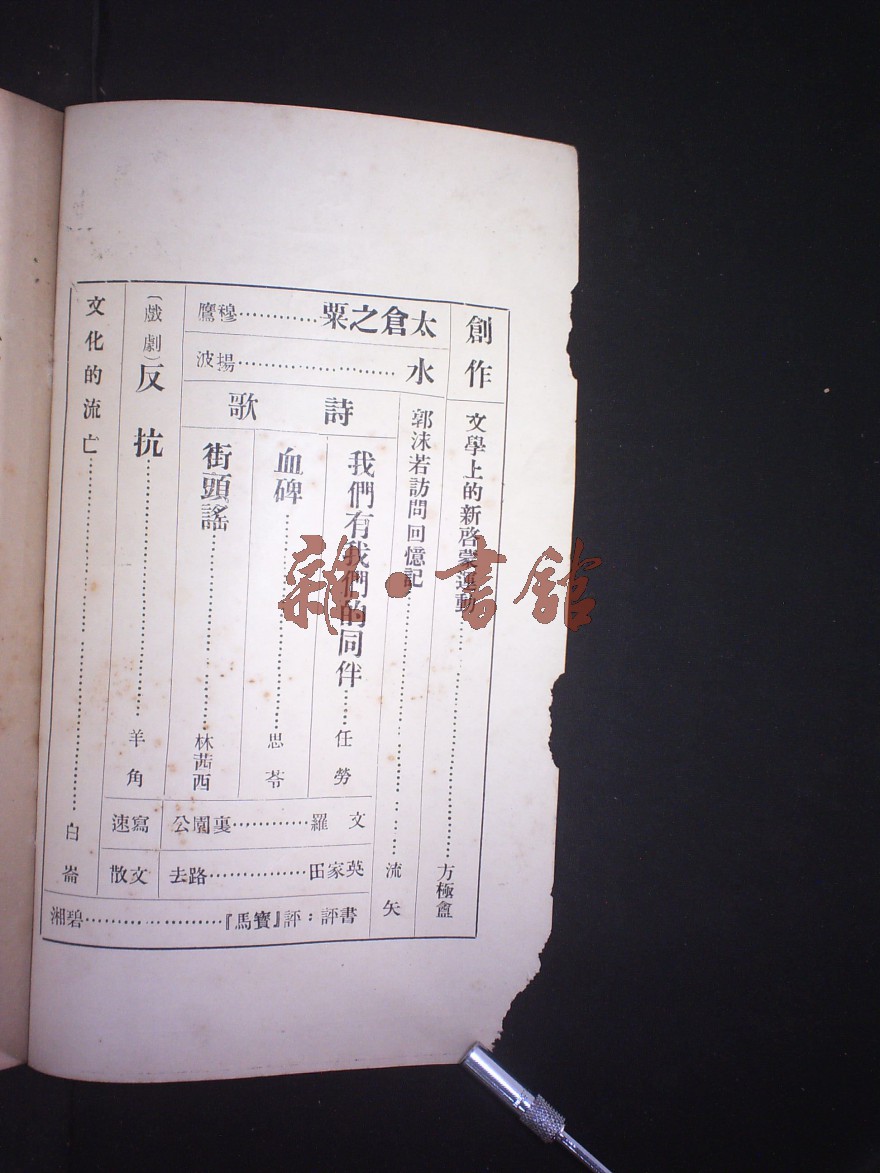 創作
文學上的新啓蒙運動……方極盦
太倉之粟……穆鷹
水……揚波
郭沫若訪問回憶記……流矢
詩歌
我們有我們的同伴……任勞
血碑……思苓
街頭謠……林茜西
（戲劇）反抗……羊角
文化的流亡……白崙
速寫 公園裏……羅文
散文 去路……田家英
書評：評『寶馬』……碧湘
雜·書館